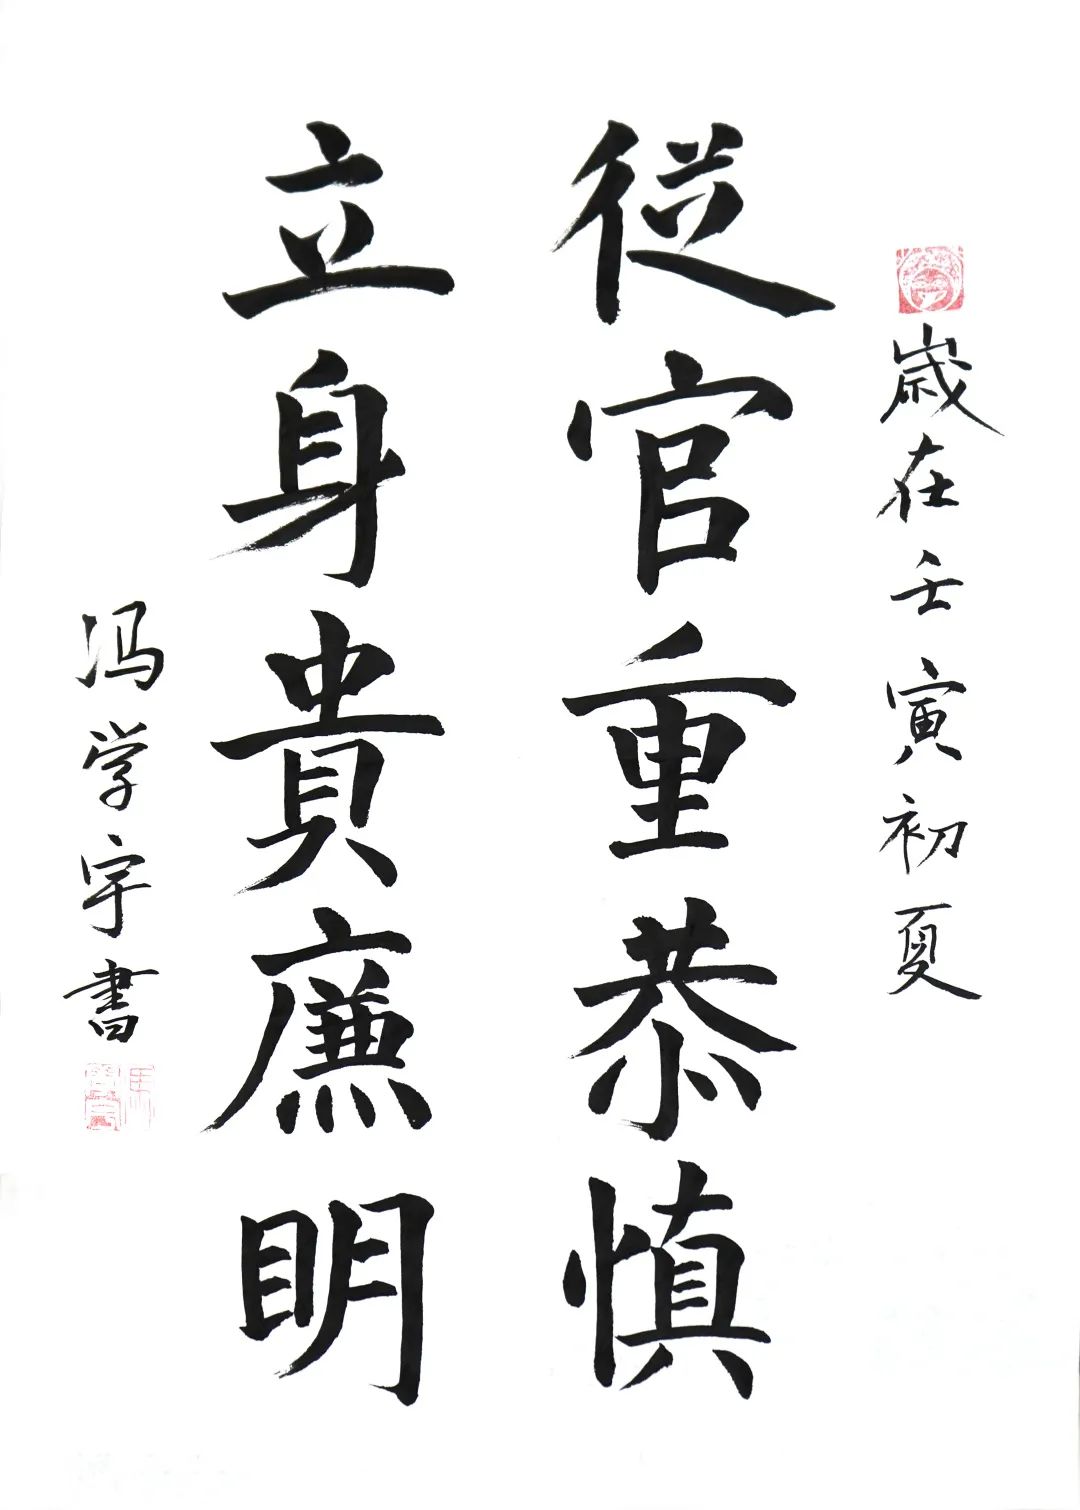 歳在壬寅初夏
従官重恭慎
立身貴廉明
冯学宇書